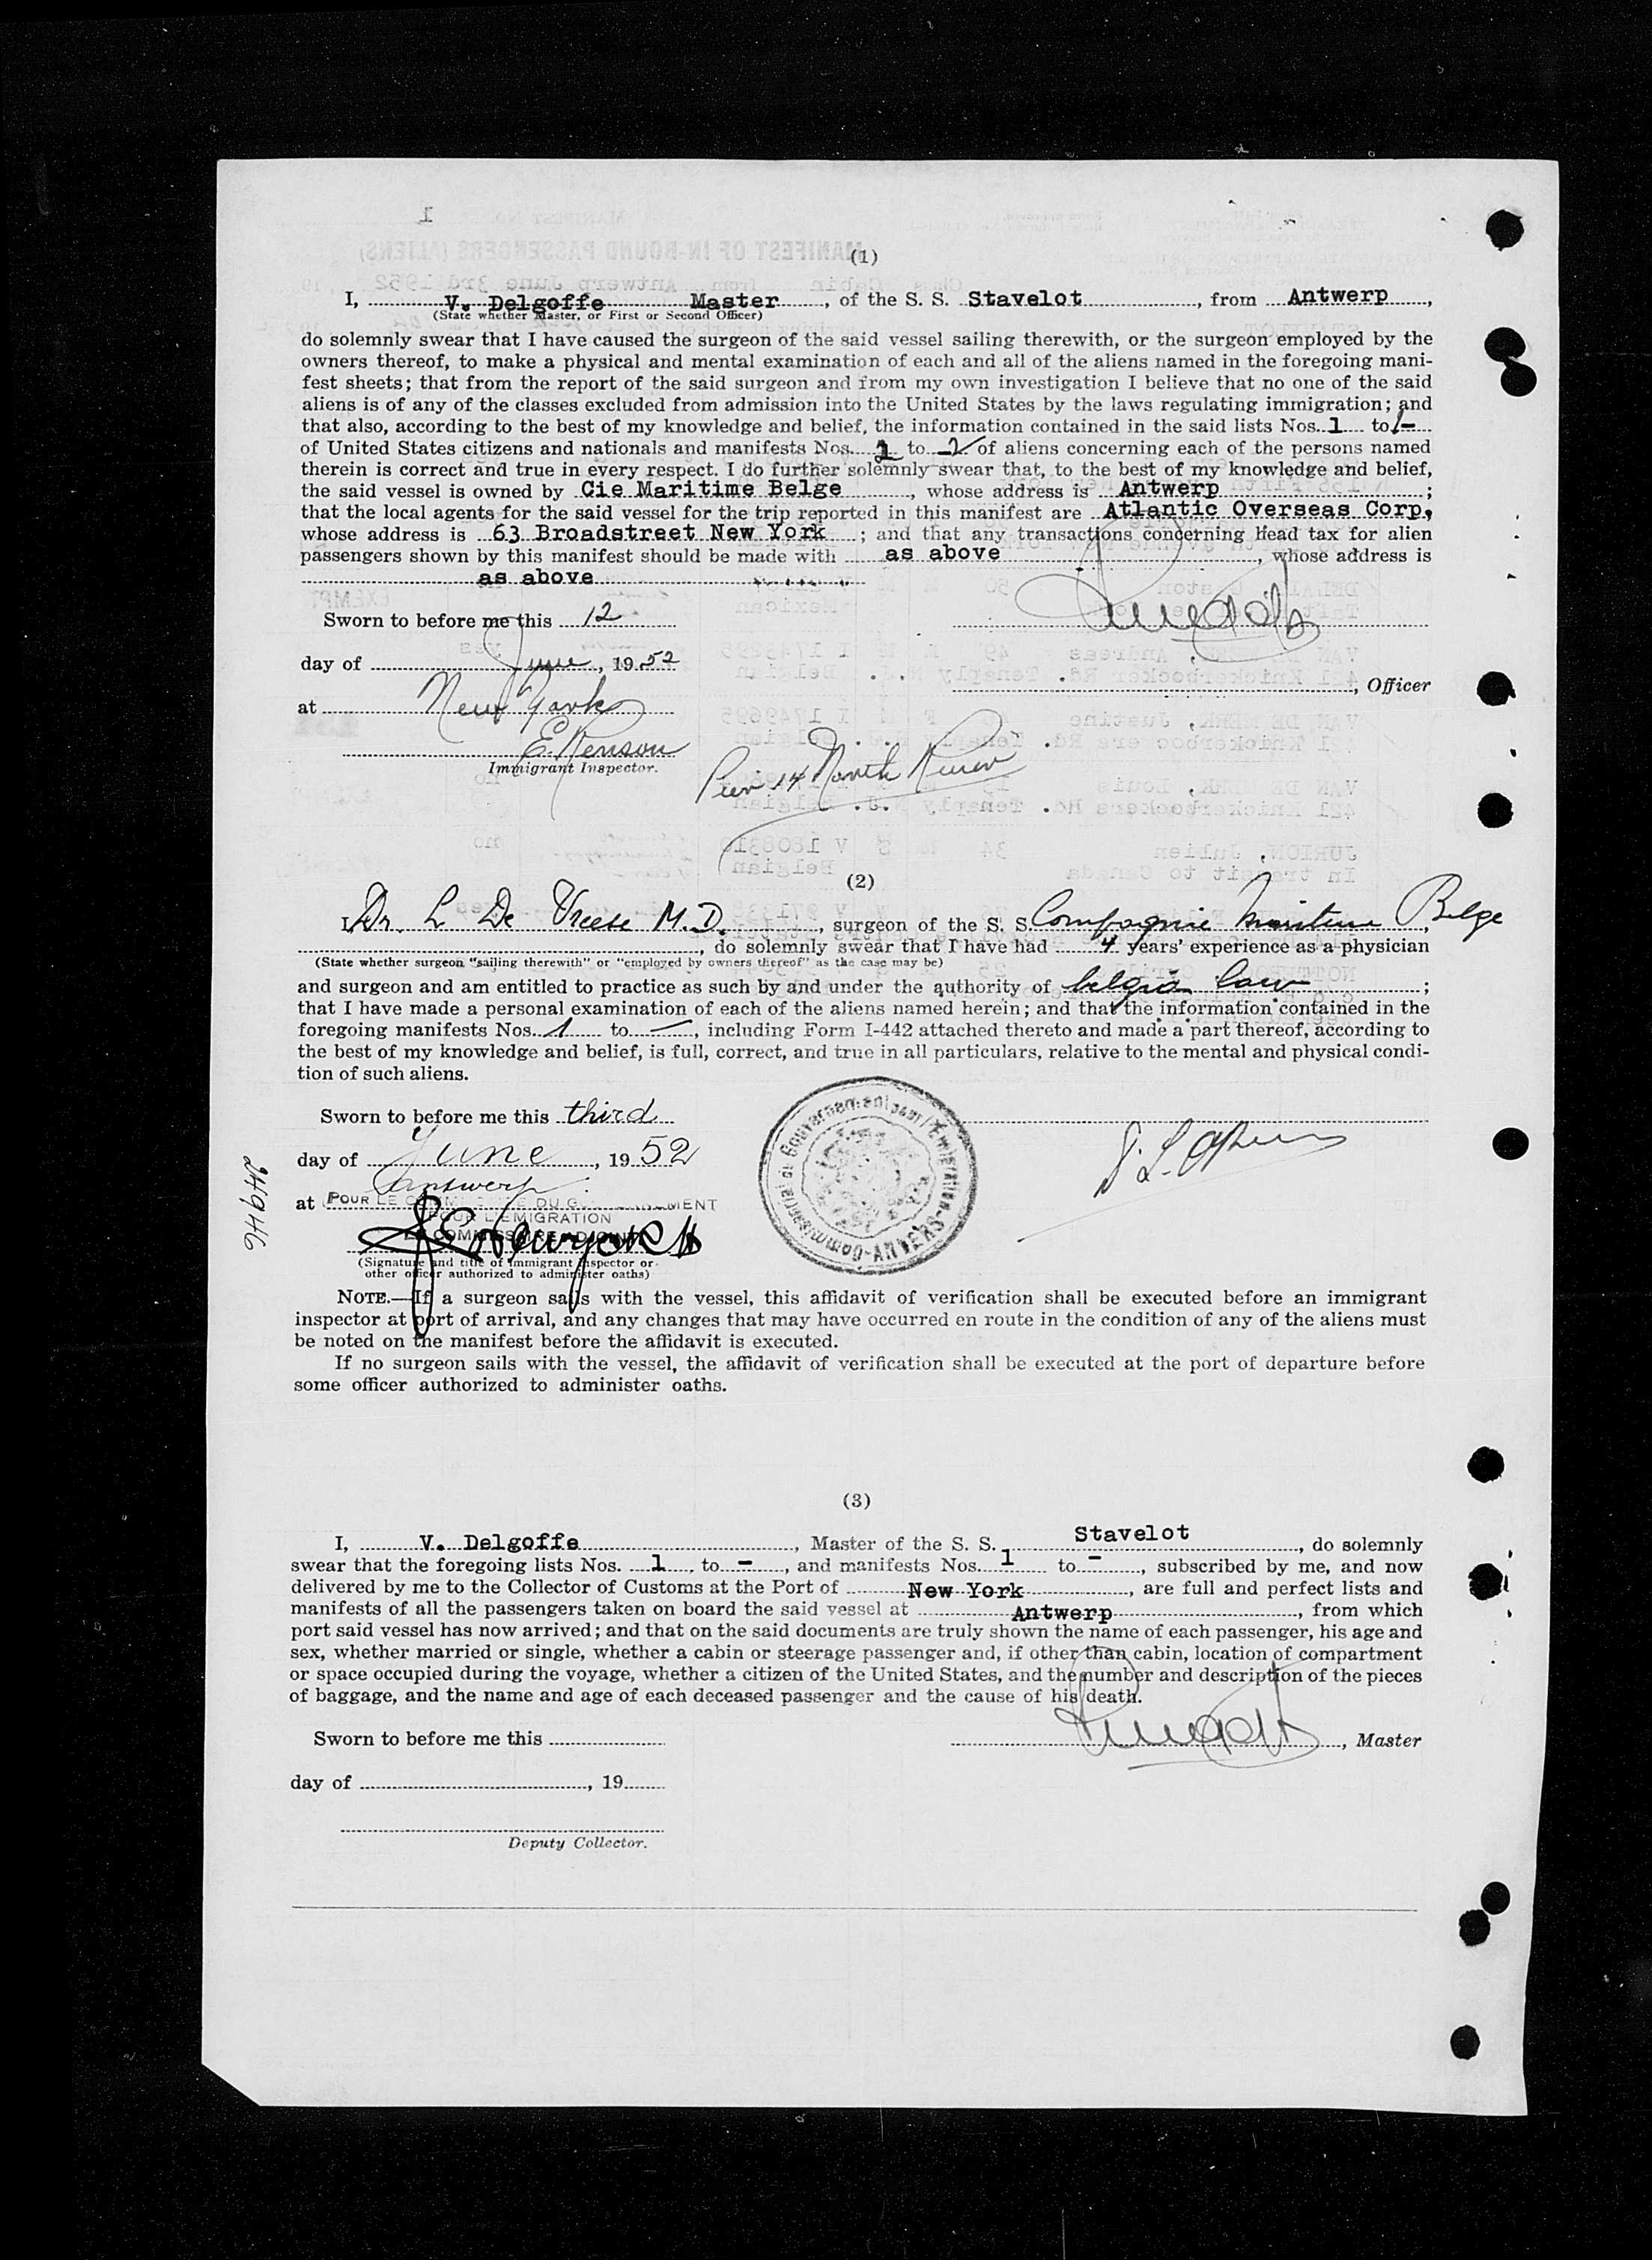 (1)
I, V. Delgoffe Master, of the S. S. Stavelot, from Antwerp,
(State whether Master, or First or Second Officer)
do solemnly swear that I have caused the surgeon of the said vessel sailing therewith, or the surgeon employed by the
owners thereof, to make a physical and mental examination of each and all of the aliens named in the foregoing mani-
fest sheets; that from the report of the said surgeon and from my own investigation I believe that no one of the said
aliens is of any of the classes excluded from admission into the United States by the laws regulating immigration; and
that also, according to the best of my knowledge and belief, the information contained in the said lists Nos. 1 to 1-
of United States citizens and nationals and manifests Nos. 1 to 2 of aliens concerning each of the persons named
therein is correct and true in every respect. I do further solemnly swear that, to the best of my knowledge and belief,
the said vessel is owned by Cie Maritime Belge, whose address is Antwerp;
that the local agents for the said vessel for the trip reported in this manifest are Atlantic Overseas Corp,
whose address is 63 Broadstreet New York; and that any transactions concerning head tax for alien
passengers shown by this manifest should be made with as above, whose address is
as above
Sworn to before me this 12
day of June, 1952
, Officer
at New York
E. Renson
Immigrant Inspector.
Pier 14 North River
(2)
I, Dr. L De Vreese M.D., surgeon of the S. S. Compagnie Maritime Belge,
, do solemnly swear that I have had 4 years' experience as a physician
(State whether surgeon "sailing therewith" or "employed by owners thereof" as the case may be)
and surgeon and am entitled to practice as such by and under the authority of belgian law;
that I have made a personal examination of each of the aliens named herein; and that the information contained in the
foregoing manifests Nos. 1 to —, including Form I-442 attached thereto and made a part thereof, according to
the best of my knowledge and belief, is full, correct, and true in all particulars, relative to the mental and physical condi-
tion of such aliens.
Sworn to before me this third
day of June, 1952
Commissariat du Gouvernement pour l'Emigration-ANVERS-
at Antwerp
POUR LE COMMISSAIRE DU GOUVERNEMENT
POUR L'EMIGRATION
LE COMMISSAIRE ADJOINT
(Signature and title of immigrant inspector or
other officer authorized to administer oaths)
244946
NOTE.—If a surgeon sails with the vessel, this affidavit of verification shall be executed before an immigrant
inspector at port of arrival, and any changes that may have occurred en route in the condition of any of the aliens must
be noted on the manifest before the affidavit is executed.
If no surgeon sails with the vessel, the affidavit of verification shall be executed at the port of departure before
some officer authorized to administer oaths.
(3)
I, V. Delgoffe, Master of the S. S. Stavelot, do solemnly
swear that the foregoing lists Nos. 1 to -, and manifests Nos. 1 to -, subscribed by me, and now
delivered by me to the Collector of Customs at the Port of New York, are full and perfect lists and
manifests of all the passengers taken on board the said vessel at Antwerp, from which
port said vessel has now arrived; and that on the said documents are truly shown the name of each passenger, his age and
sex, whether married or single, whether a cabin or steerage passenger and, if other than cabin, location of compartment
or space occupied during the voyage, whether a citizen of the United States, and the number and description of the pieces
of baggage, and the name and age of each deceased passenger and the cause of his death.
Sworn to before me this
, Master
day of , 19
Deputy Collector.